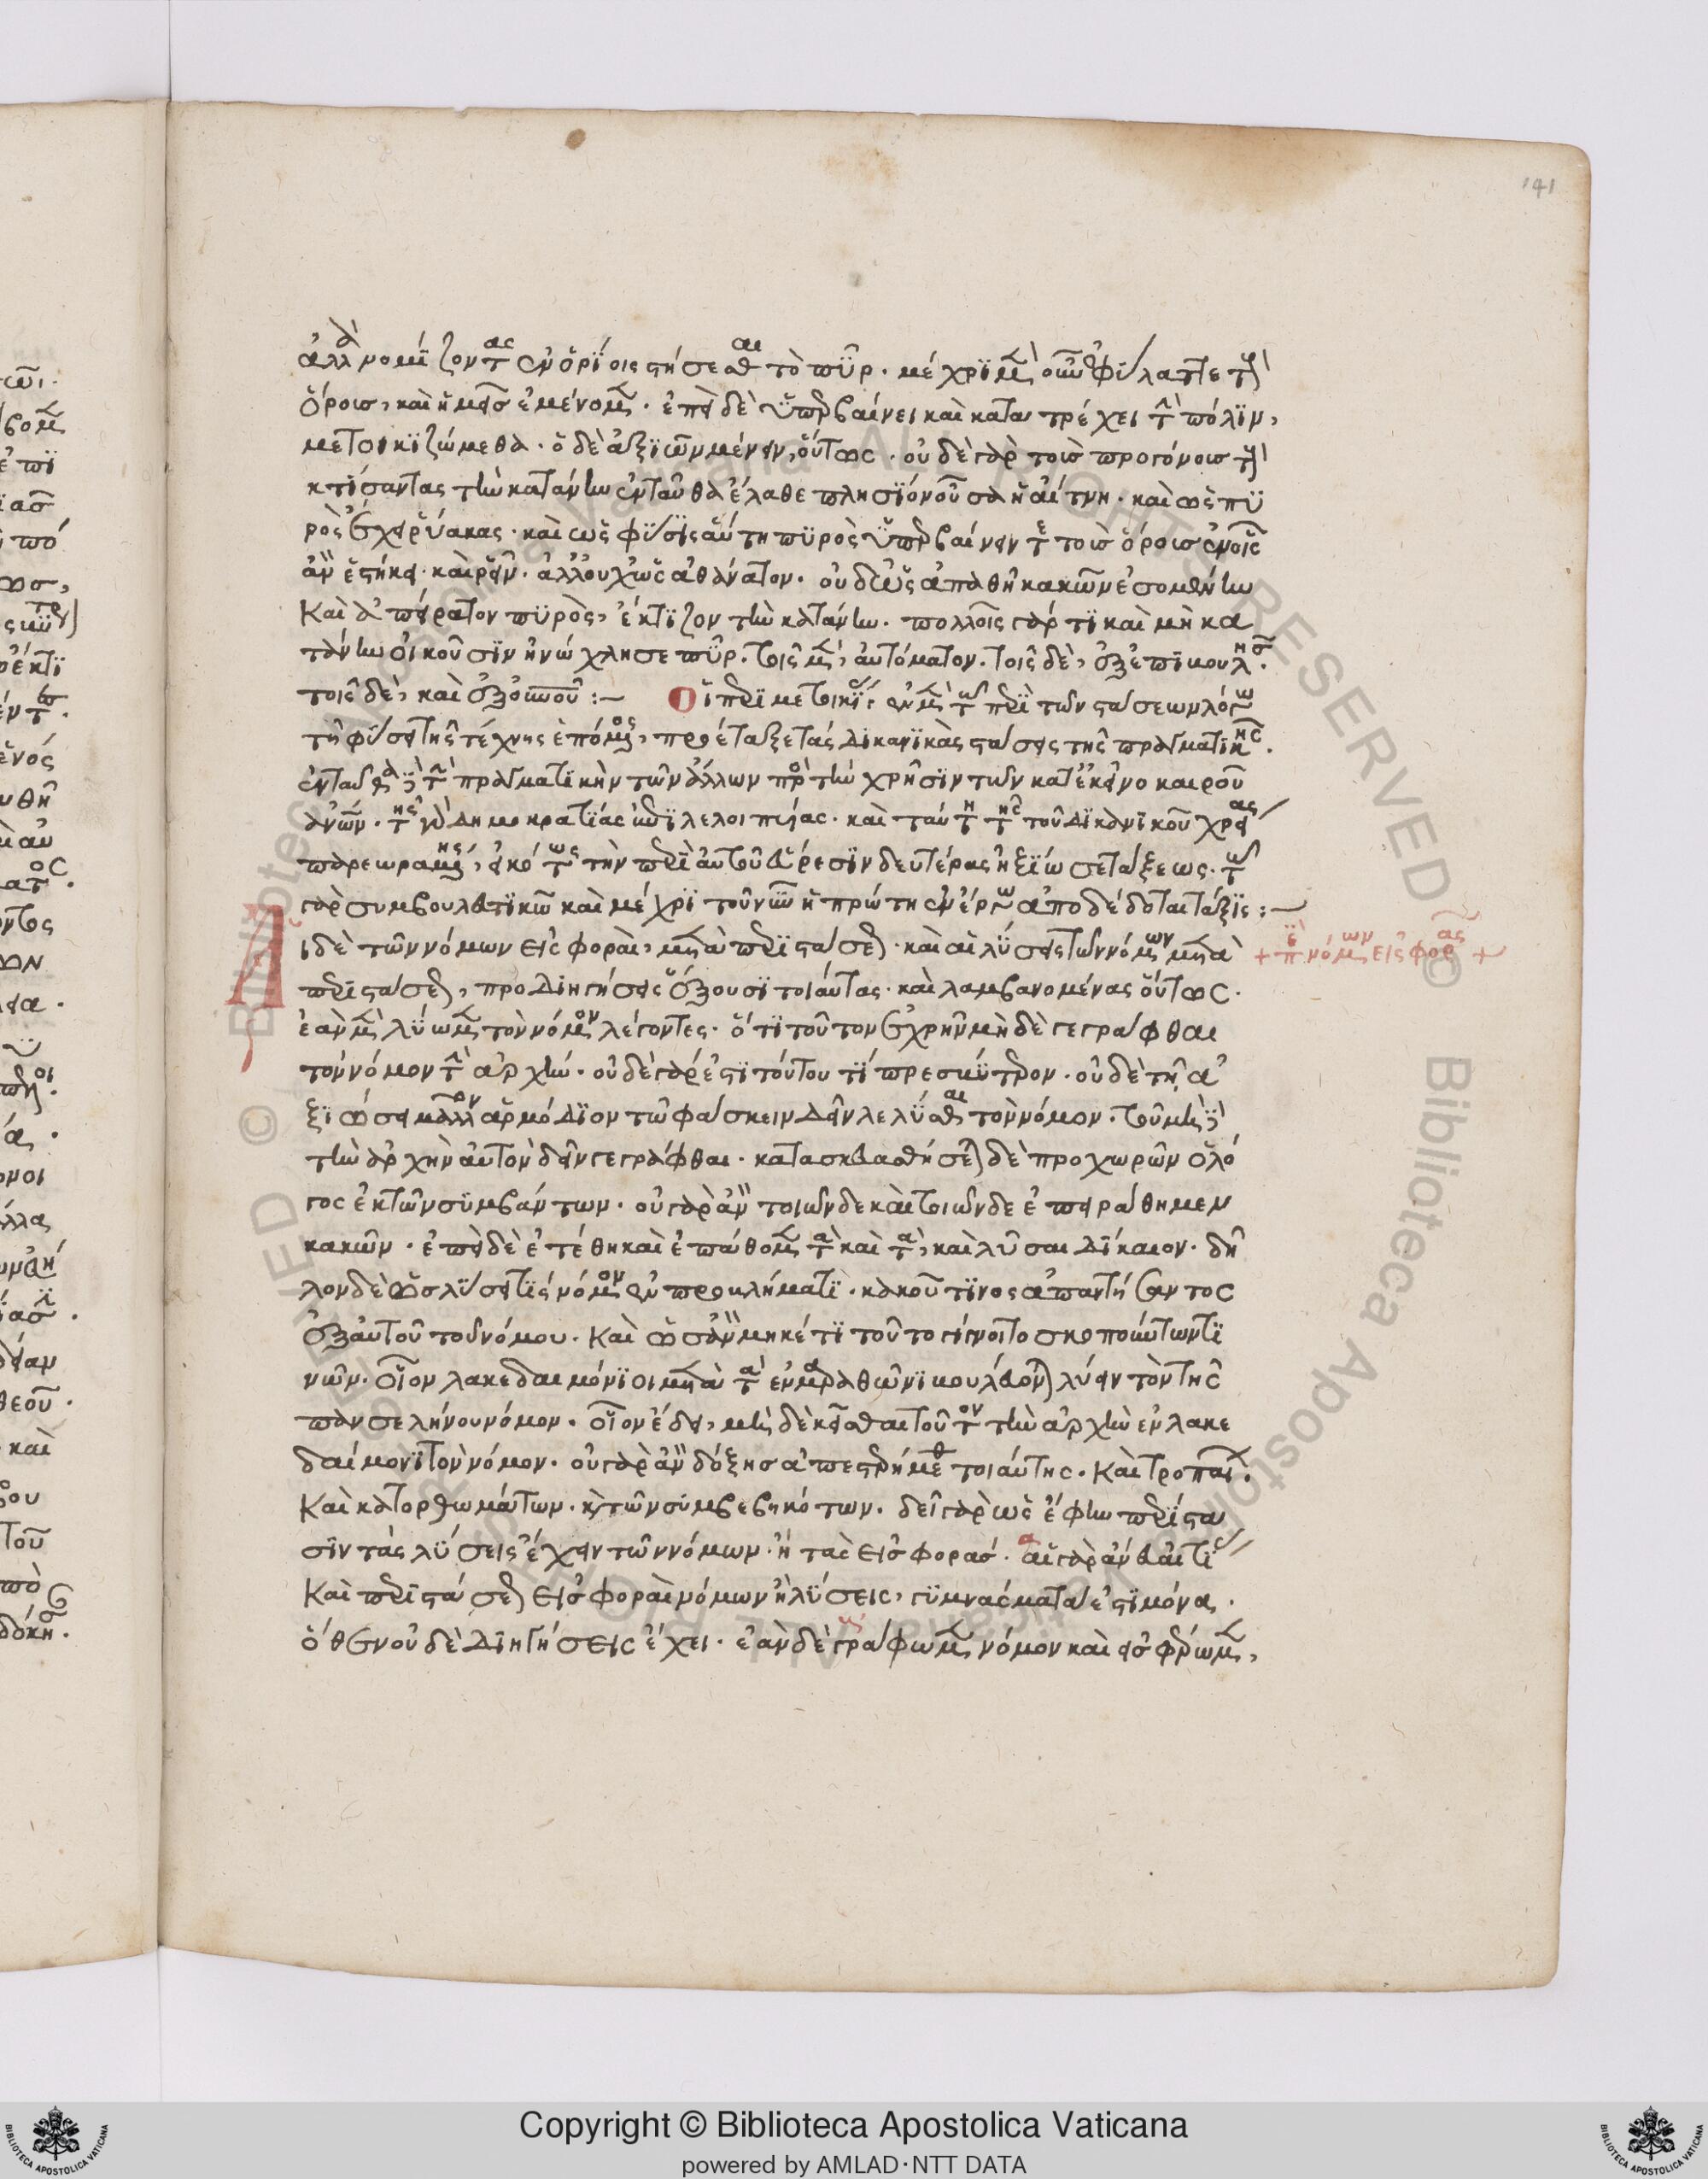 141
ἀλλὰ νομίζοντας ἐν ὁρίοις στήσεσθαι τὸ πῦρ. μέχρι μὲν οὖν ἐφύλαττε τοὺς
ὅρους, καὶ ἡμεῖς ἐμένομεν. ἐπεὶ δὲ ὑπερβαίνει καὶ κατατρέχει τὴν πόλιν,
μετοικιζώμεθα. ὁ δὲ ἀξιῶν μένειν, οὕτως. οὐδὲ γὰρ τοὺς προγόνους τοὺς
κτίσαντας τὴν κατάνην ἐνταῦθα ἔλαθε πλησίον οὖσα ἡ αἴτνη. καὶ ὡς πυ
ρὸς ἔχει ῥύακας. καὶ ὡς φύσις αὕτη πυρὸς ὑπερβαίνειν τοὺς ὅρους ἐν οἷς
ἂν ἑστήκει καὶ ῥεῖν. ἀλλ' οὐχ ὡς ἀθάνατον. οὐδ' ὡς ἀπαθῆ κακῶν ἐσομένην
καὶ ἀπείρατον πυρὸς, ἔκτιζον τὴν κατάνην. πολλοῖς γάρ τι καὶ μὴ κα
τάνην οἰκοῦσιν ἠνώχλησε πῦρ. τοῖς μὲν, αὐτόματον. τοῖς δὲ, ἐξ ἐπιβουλῆς.
τοῖς δὲ, καὶ ἐξ οὐρανοῦ :–
τῇ φύσει τῆς τέχνης ἑπόμενος, προέταξε τὰς δικανικὰς στάσεις τῆς πραγματικῆς.
ἐνταῦθα τὴν πραγματικὴν τῶν ἄλλων πρὸς τὴν χρῆσιν τῶν κατ' ἐκεῖνο καιροῦ
τῆς δημοκρατίας ἤδη λελοιπυίας. καὶ ταύτῃ τῆς τοῦ δικανικοῦ χρείας
παρεωραμένης, εἰκότως τὴν περὶ αὐτοῦ εὕρεσιν δευτέρας ἠξίωσε τάξεως. τῷ
γὰρ συμβουλευτικῷ καὶ μέχρι τοῦ νῦν ἡ πρώτη ἀποδέδοται τάξις :–
Αἱ δὲ τῶν νόμων εἰσφοραὶ, μετὰ περιστάσεως. καὶ αἱ λύσεις τῶν νόμων μετὰ
+ περὶ νόμων εἰσφορᾶς +
περιστάσεως, προδιηγήσεις ἕξουσι τοιαύτας. καὶ λαμβανομένας οὕτως.
ἐὰν μὲν λύωμεν τὸν νόμον λέγοντες. ὅτι τοῦτον ἐχρῆν μηδὲ γεγράφθαι
τὸν νόμον τὴν ἀρχήν. οὐδὲ γάρ ἐστι τούτου τί πρεσβύτερον. οὐδὲ τῇ ἀ
ξιώσει μᾶλλον ἁρμόδιον τῷ φάσκειν δεῖν λελύσθαι τὸν νόμον. τοῦ μὴ
τὴν ἀρχὴν αὐτὸν δεῖν γεγράφθαι. κατασκευασθήσεται δὲ προχωρῶν ὁ λό
γος ἐκ τῶν συμβάντων. οὐ γὰρ ἂν τοιῶνδε καὶ τοιῶνδε ἐπειράθημεν
κακῶν. ἐπεὶ δὲ ἐτέθη καὶ ἐπάθομεν τὰ καὶ τὰ, καὶ λῦσαι δίκαιον. δῆ
λον δὲ ὡς λύσει τίς νόμον ἐν προκλήματι. κἀκ τοῦ τινος ἀπαντήσαντος
ἐξ αὐτοῦ τοῦ νόμου. καὶ ὡς ἂν μηκέτι τοῦτο γίγνοιτο σκοπούντων τι
νῶν. οἷον λακεδαιμόνιοι μετὰ τὰ ἐν μαραθῶνι βουλεύονται λύειν τὸν τῆς
πανσελήνου νόμον. οἷον ἔδει, μὴ δὲ κεῖσθαι τοῦτον τὴν ἀρχὴν ἐν λακε
δαίμονι τὸν νόμον. οὐ γὰρ ἂν δόξης ἀπεστερήμεθα τοιαύτης. καὶ τροπαίων.
καὶ κατορθωμάτων. καὶ τῶν συμβεβηκότων. δεῖ γὰρ ὡς ἔφην περίστα
σιν τὰς λύσεις ἔχειν τῶν νόμων. ἢ τὰς εἰσφοράς. αἱ γὰρ ἄνευ αἰτίας
καὶ περιστάσεως εἰσφοραὶ νόμων ἢ λύσεις, γυμνάσματα ἐστὶ μόνα.
ὅθεν οὐδὲ διηγήσεις ἔχει. ἐὰν δὲ γράφωμεν νόμον καὶ εἰσφέρωμεν,
Copyright © Biblioteca Apostolica Vaticana
powered by AMLAD·NTT DATA